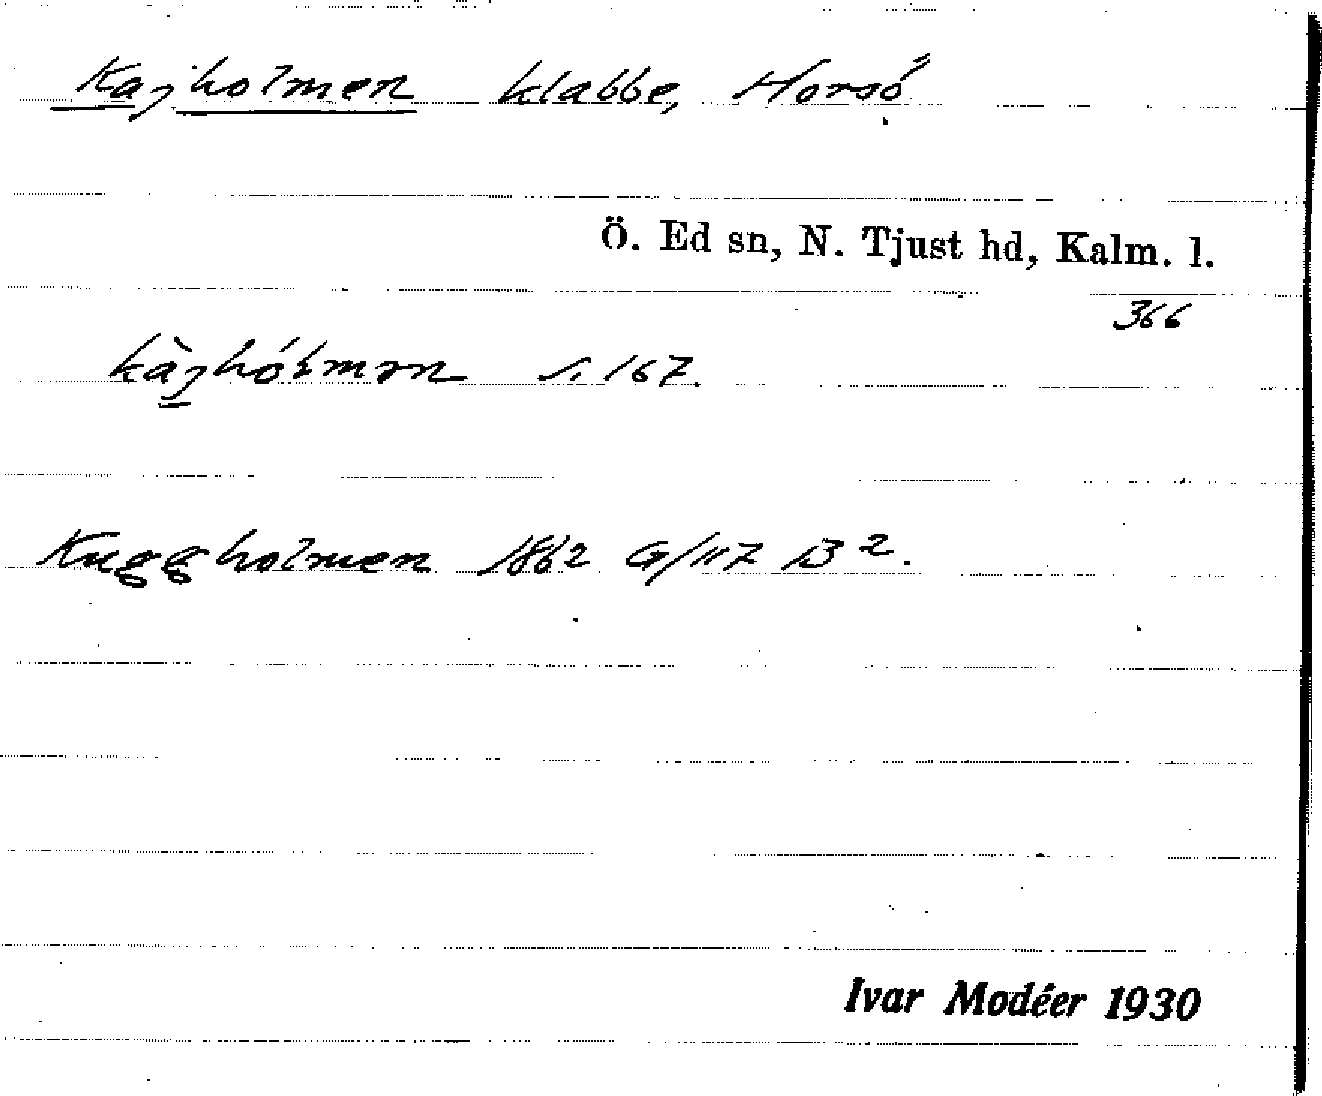 Kajholmen klabbe, Horsö
Ö. Ed sn, N. Tjust hd, Kalm. l.
366
s. 167.
Kuggholmen 1862 G/117 B².
Ivar Modéer 1930